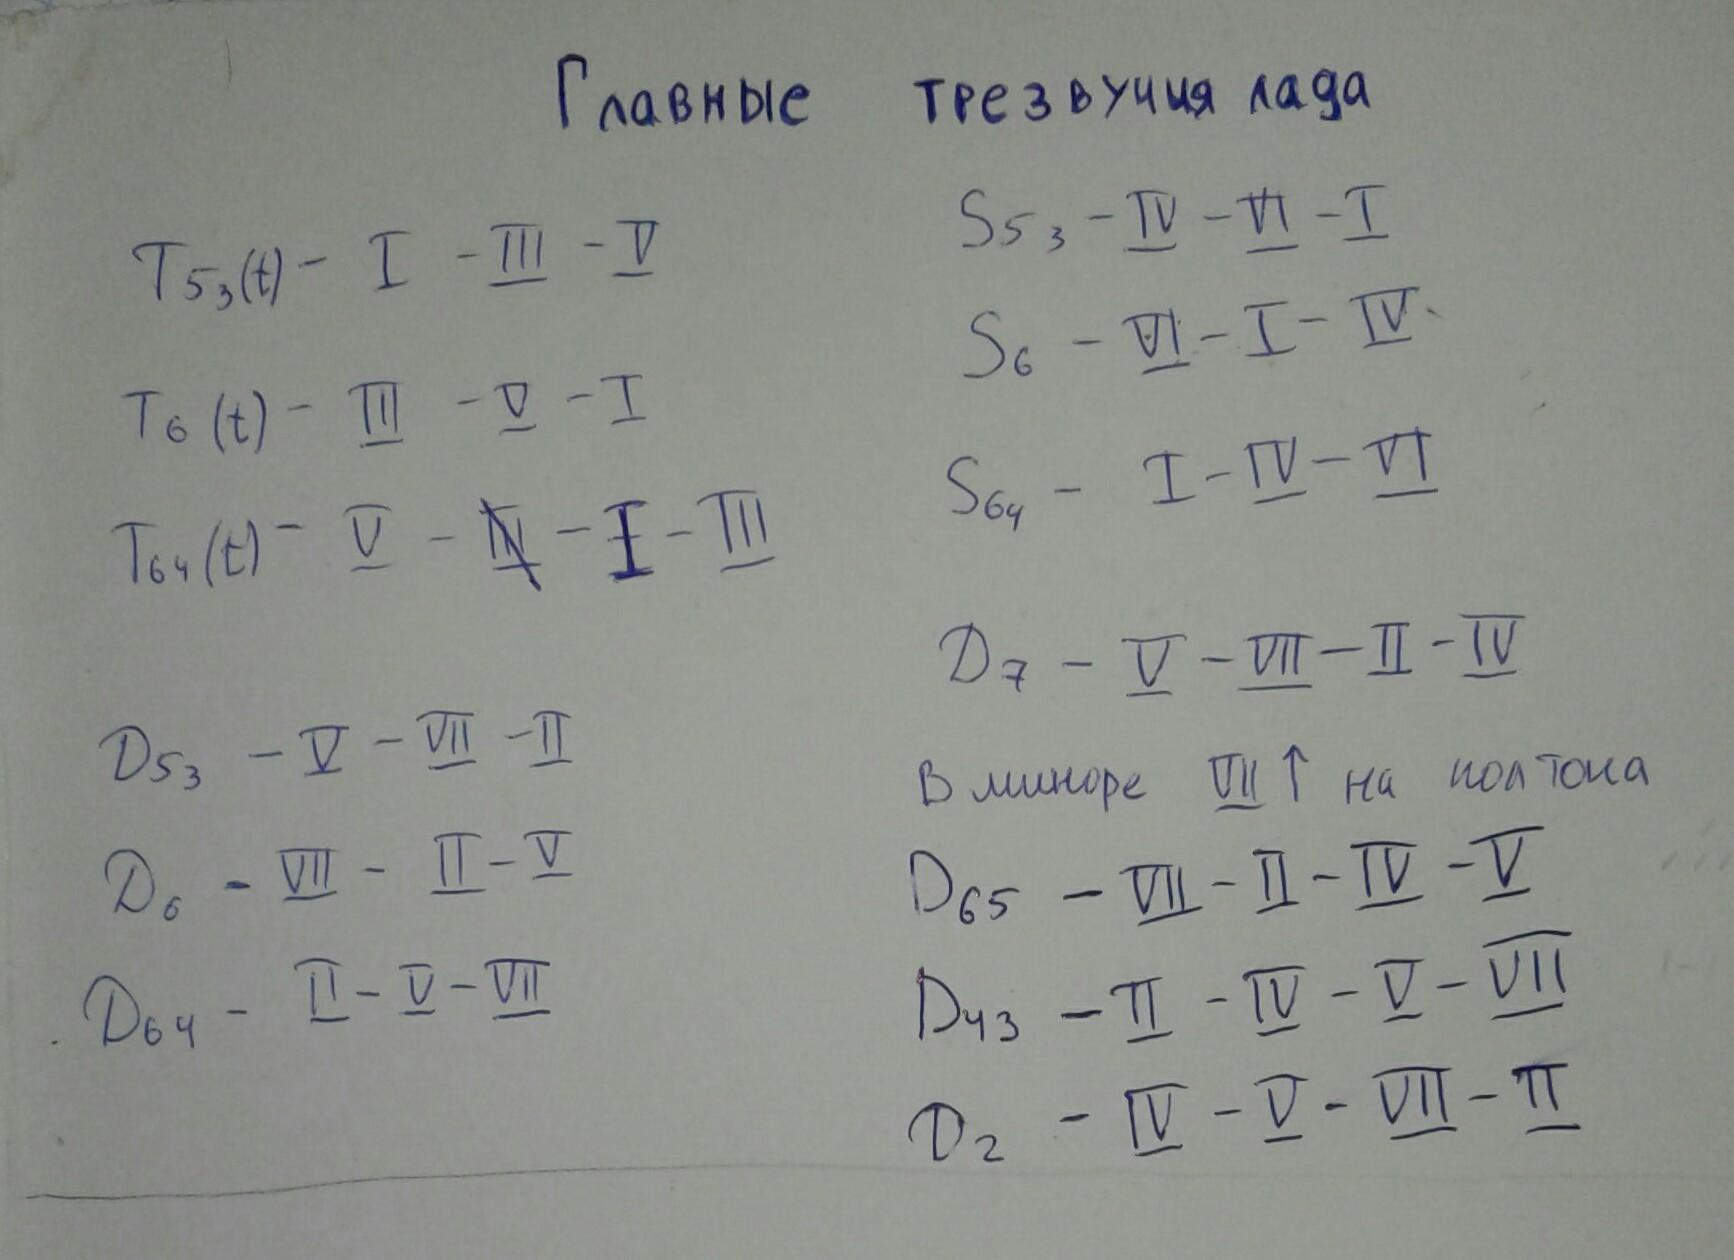 Главные трезвучия лада
T53(t) - I - III - V
T6 (t) - III - V - I
T64(t) - V - I - III
D53 - V - VII - II
D6 - VII - II - V
D64 - II - V - VII
S53 - IV - VI - I
S6 - VI - I - IV
S64 - I - IV - VI
D7 - V - VII - II - IV
В миноре VII↑ на полтона
D65 - VII - II - IV - V
D43 - II - IV - V - VII
D2 - IV - V - VII - II